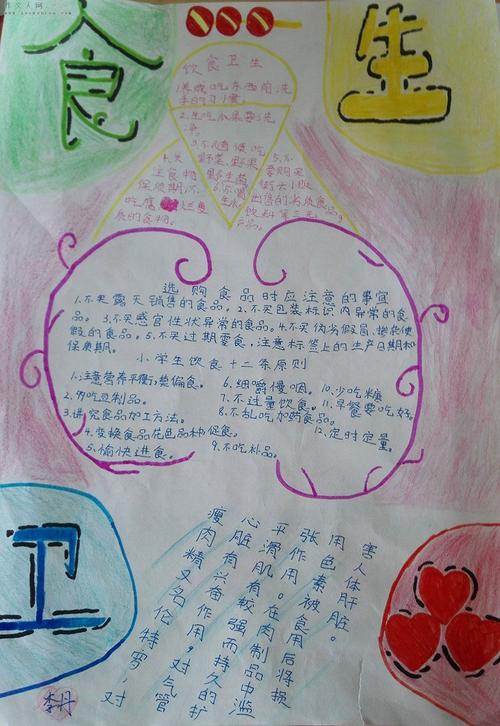 食
生
饮食卫生
1.养成吃东西前洗
手的习惯。
2.生吃瓜果要洗
净。
3.不随便吃
野菜、野果
4.关
注食物
保质期,不
吃腐
质的食物。
6.不喝
生水
5.不
要购买
街头小贩
出售的劣质食品,
饮料等三无
产品。
选购食品时应注意的事宜
1.不买露天销售的食品。2.不买包装标识内异常的食
品。3.不买感官性状异常的食品。4.不买伪劣假冒、掺杂使
假的食品。5.不买过期零食,注意标签上的生产日期和
保质期。
小学生饮食十二条原则
1.注意营养平衡,禁偏食。
2.常吃豆制品。
3.讲究食品加工方法。
4.变换食品花色品种,促食。
5.愉快进食。
6.细嚼慢咽。
7.不过量饮食。
8.不乱吃加药食品。
9.不吃补品。
10.少吃糖
11.早餐要吃好。
12.定时定量。
卫
瘦肉精又名伦特罗,对
心脏有兴奋作用,对气管
平滑肌有较强而持久的扩
张作用。在肉制品中滥
用色素被食用后将损
害人体肝脏。
李丹